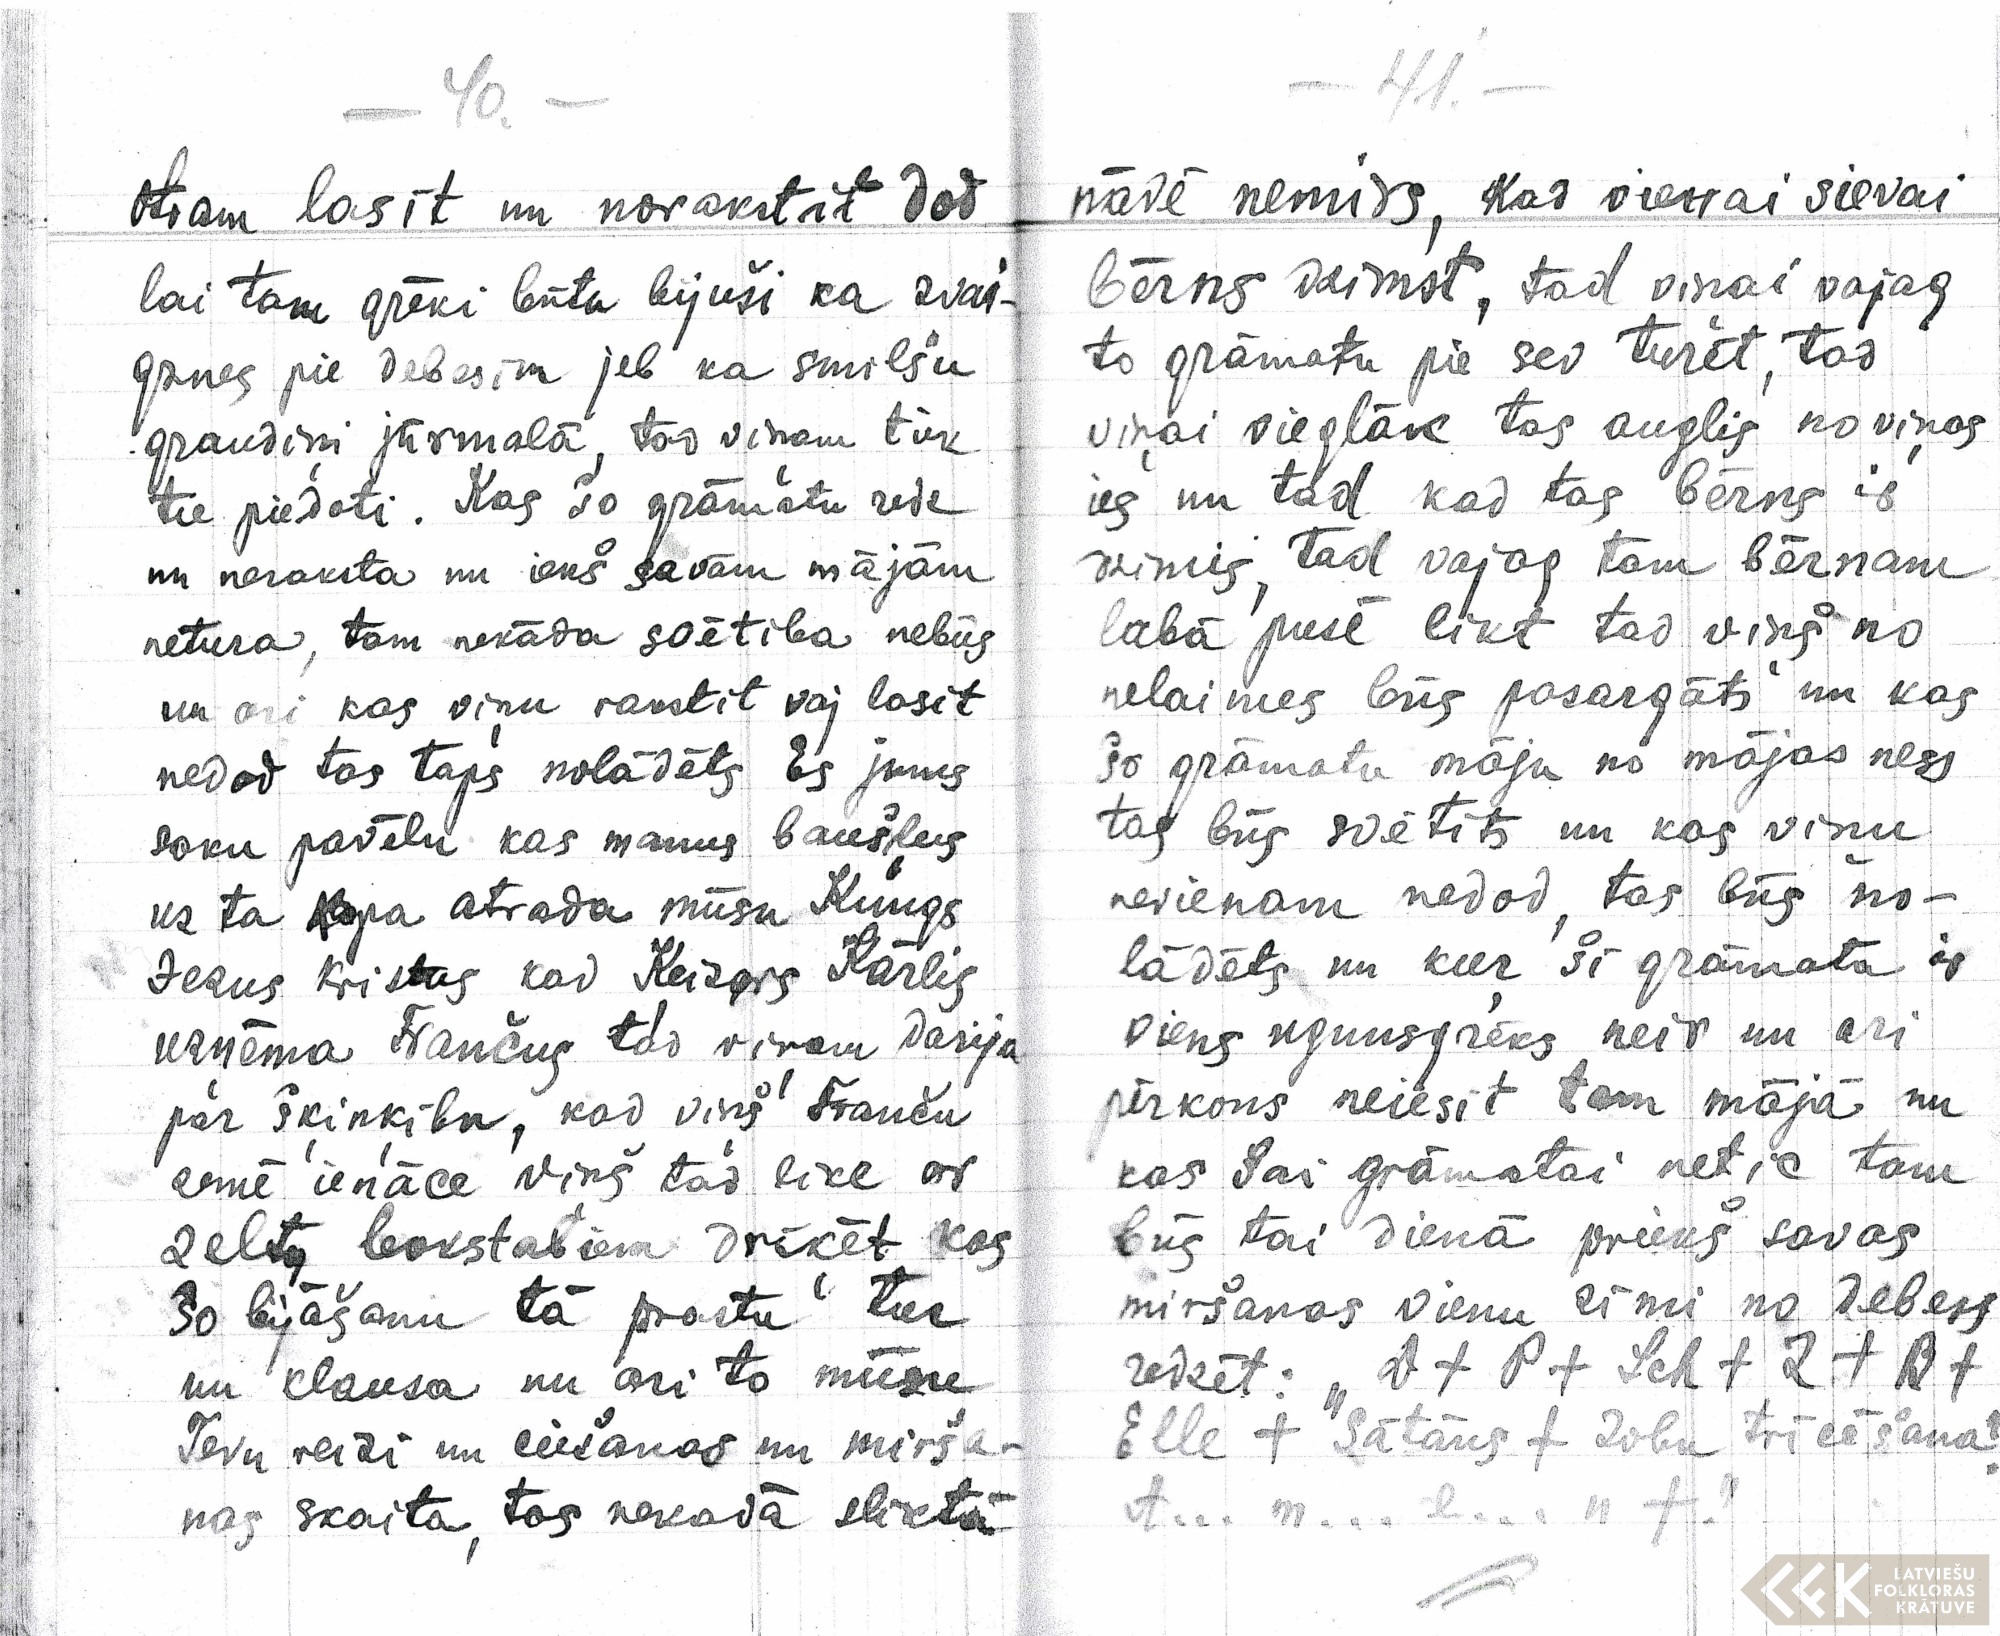 — 40. —
otram lasīt un norakstīt dod
lai tam grēki būtu bijuši ka zvai-
gznes pie debesīm jeb ka smilšu
graudiņi jūrmalā, tad viņam tūk
tie piedoti. Kas šo grāmatu redz
un neraksta un iekš savām mājām
netura, tam nekāda svētiba nebūs
un ari kas viņu rakstit vaj lasit
nedod tas taps nolādēts Es jums
soku pavēlu kas manus baušļus
uz ta atrada mūsu Kungs
Jezus Kristus kad Keizars Kārlis
uzņēma Frančus tad viņam darija
par šķinķibu, kad viņš Franču
zemē ienāce viņš tad like ar
zelta bokstabiem drikēt kas
šo bijāšanu tā prastu tur
un klausa un ari to mūsu
Tevu reizi un ciešanas un mirša-
nas skaita, tas nekadā sliktā
— 41. —
nāvē nemirs, Kad vienai sievai
bērns dzimst, tad viņai vajag
to grāmatu pie sev turēt, tad
viņai vieglāk tas auglis no viņas
ies un tad kad tas bērns ir
dzimis, tad vajag tam bērnam
labā pusē likt tad viņš no
nelaimes būs pasargāts un kas
šo grāmatu māju no mājas ness
tas būs svētits un kas viņu
nevienam nedod, tas būs no-
lādēts un kur šī grāmata ir
viens ugunsgrēks neir un ari
pērkons neiesit tam mājā un
kas šai grāmatai netic tam
būs tai dienā priekš savas
miršanas vienu zīmi no debess
redzēt: „D + P + Sch + Z + R +
Elle + Sātāns + Zobu tricēšana!
A... m.... e.... n +."
LATVIEŠU
FOLKLORAS
KRĀTUVE